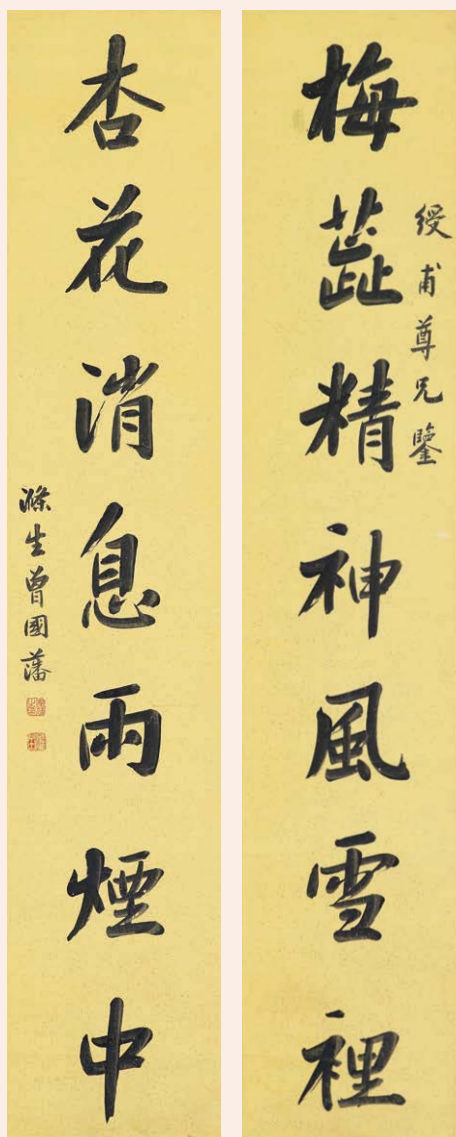 梅蕋精神風雪裡
綬甫尊兄鑒
杏花消息雨煙中
滌生曾國藩